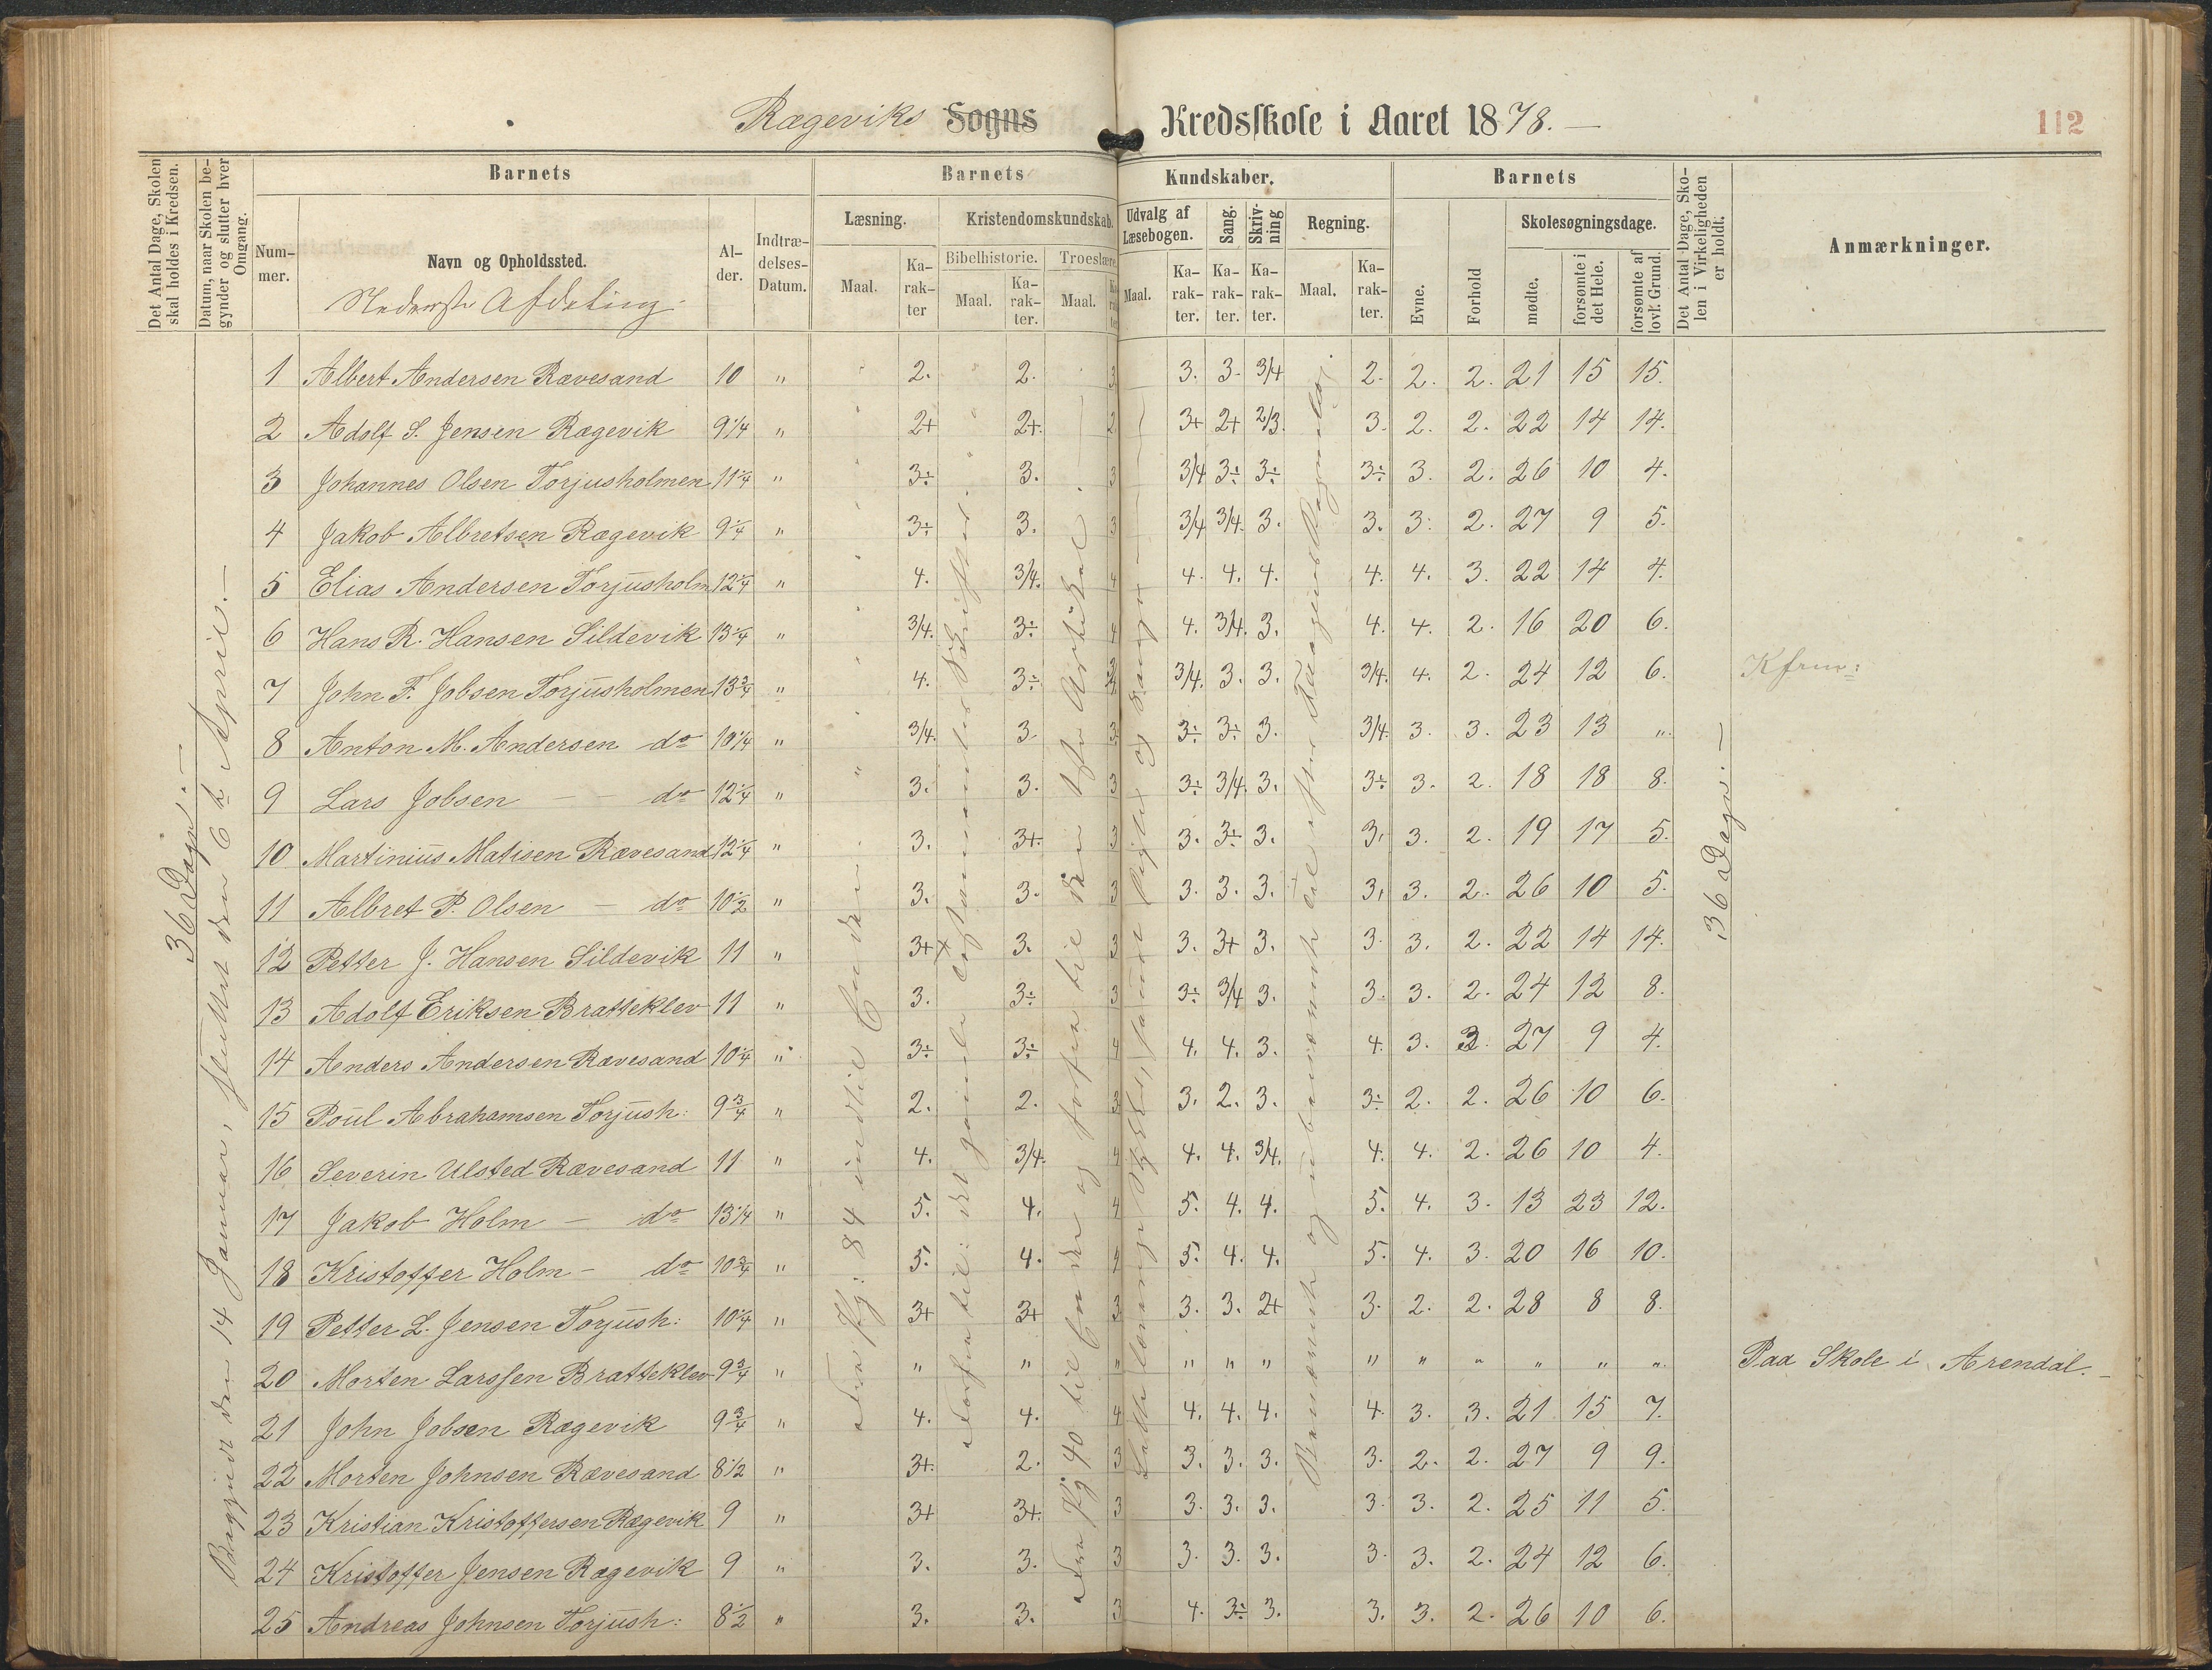 Rægeviks Sogns Kredsskole i Aaret 1878. —
112
Det Antal Dage, Skolen skal holdes i Kredsen.
Datum, naar Skolen begynder og slutter hver Omgang.
Barnets
Barnets Kundskaber.
Barnets
Det Antal Dage, Skolen i Virkeligheden er holdt.
Anmærkninger.
Nummer.
Navn og Opholdssted.
Nederste Afdeling
Alder.
Indtrædelses-Datum.
Læsning.
Kristendomskundskab.
Udvalg af Læsebogen.
Sang.
Skrivning
Regning.
Evne.
Forhold
Skolesøgningsdage.
Bibelhistorie.
Troeslære.
Maal.
Karakter
Maal.
Karakter.
Maal.
Karakter
Maal.
Karakter.
Karakter.
Karakter.
Maal.
Karakter.
mødte.
forsømte i det Hele.
forsømte af lovl. Grund.
36 Dage. —
Begyndt den 14 Januar, sluttet den 6te April. —
36 Dage. —
1 Albert Andersen Rævesand 10 " 2. 2. 3 3. 3. 3/4 2. 2. 2. 21 15 15.
2 Adolf S. Jensen Rægevik 9 1/4 " 2+ 2+. 2 3+ 2+ 2/3. 3. 2. 2. 22 14 14.
3 Johannes Olsen Torjusholmen 11 1/4 " 3÷ 3. 3 3/4 3÷ 3÷ 3÷ 3. 2. 26 10 4.
4 Jakob Albretsen Rægevik 9 1/4 " 3÷ 3. 3 3/4 3/4. 3. 3. 3. 2. 27 9 5.
5 Elias Andersen Torjusholm 12 1/4 " 4. 3/4. 4 4. 4. 4. 4. 4. 3. 22 14 4.
6 Hans R. Hansen Sildevik 13 1/4 " 3/4. 3÷ 4 4. 3/4. 3. 4. 4. 2. 16 20 6.
7 John F. Jobsen Torjusholmen 13 3/4 " 4. 3÷ 3/4. 3. 3. 3/4. 4. 2. 24 12 6.
8 Anton M. Andersen do 10 1/4 " 3/4. 3. 3 3÷ 3÷ 3. 3/4. 3. 3. 23 13 "
9 Lars Jobsen — — do 12 1/4 " 3. 3. 3 3÷ 3/4. 3. 3÷ 3. 2. 18 18 8.
10 Martinius Matisen Rævesand 12 1/4 " 3. 3+. 3 3. 3÷ 3. 3. 3. 2. 19 17 5.
11 Albret P. Olsen — do 10 1/2 " 3. 3. 3 3. 3. 3. 3. 3. 2. 26 10 5.
12 Petter J. Hansen Sildevik 11 " 3+ 3. 3 3. 3+ 3. 3. 3. 2. 22 14 14.
13 Adolf Eriksen Bratteklev 11 " 3. 3÷ 3 3÷ 3/4 3. 3. 3. 2. 24 12 8.
14 Anders Andersen Rævesand 10 1/4 " 3÷ 3÷ 4 4. 4. 3. 4. 3. 27 9 4.
15 Poul Abrahamsen Torjush: 9 3/4 " 2. 2. 3 3. 2. 3. 3÷ 2. 2. 26 10 6.
16 Severin Ulsted Rævesand 11 " 4. 3/4. 4 4. 4. 3/4. 4. 4. 2. 26 10 4.
17 Jakob Holm — do 13 1/4 " 5. 4. 4 5. 4. 4. 5. 4. 3. 13 23 12.
18 Kristoffer Holm — do 10 3/4 " 5. 4. 4 5. 4. 4. 5. 4. 3. 20 16 10.
19 Petter L. Jensen Torjush: 10 1/4 " 3+ 3+ 3 3. 3. 2+ 3. 2. 2. 28 8 8.
20 Morten Larssen Bratteklev 9 3/4 " " " " " " " " " " " " " Paa Skole i Arendal. —
21 John Jobsen Rægevik 9 3/4 " 4. 4. 4 4. 4. 4. 4. 3. 3. 21 15 7.
22 Morten Johnsen Rævesand 8 1/2 " 3+. 2. 3 3. 3. 3. 3. 2. 2. 27 9 9.
23 Kristian Kristoffersen Rægevik 9 " 3+ 3+. 3 3. 3. 3. 3. 3. 2. 25 11 5.
24 Kristoffer Jensen Rægevik 9 " 3. 3. 3 3. 3. 3. 3. 3. 2. 24 12 6.
25 Andreas Johnsen Torjush: 8 1/2 " 3. 3. 3 4. 3÷ 3. 3. 3. 2. 26 10 6.